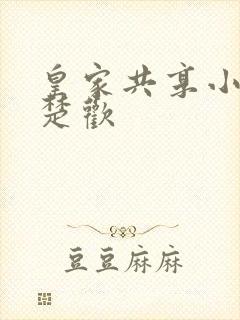 皇家共享小
楚歡
豆豆麻麻